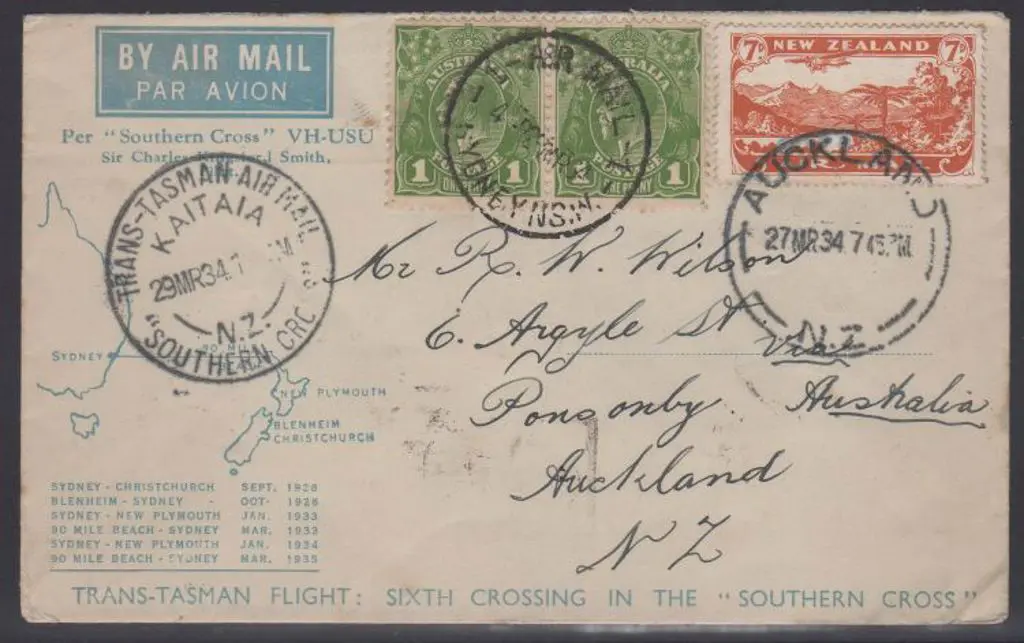 BY AIR MAIL
PAR AVION
Per "Southern Cross" VH-USU
Sir Charles Kingsford Smith,
AUSTRALIA
1 1
ONE PENNY
AUSTRALIA
1 1
ONE PENNY
AIR MAIL
SYDNEY N.S.W.
7d NEW ZEALAND 7d
AUCKLAND
27MR34.7 45 PM
N.Z.
TRANS-TASMAN AIR MAIL
KAITAIA
29MR34.
N.Z.
"SOUTHERN CRO
Mr R. W. Wilson
6. Argyle St.
Ponsonby.
Auckland
N Z
via
Australia
SYDNEY
NEW PLYMOUTH
BLENHEIM
CHRISTCHURCH
SYDNEY - CHRISTCHURCH SEPT. 1928
BLENHEIM - SYDNEY - OCT. 1928
SYDNEY - NEW PLYMOUTH JAN. 1933
90 MILE BEACH - SYDNEY MAR. 1933
SYDNEY - NEW PLYMOUTH JAN. 1934
90 MILE BEACH - SYDNEY MAR. 1935
TRANS-TASMAN FLIGHT: SIXTH CROSSING IN THE "SOUTHERN CROSS"